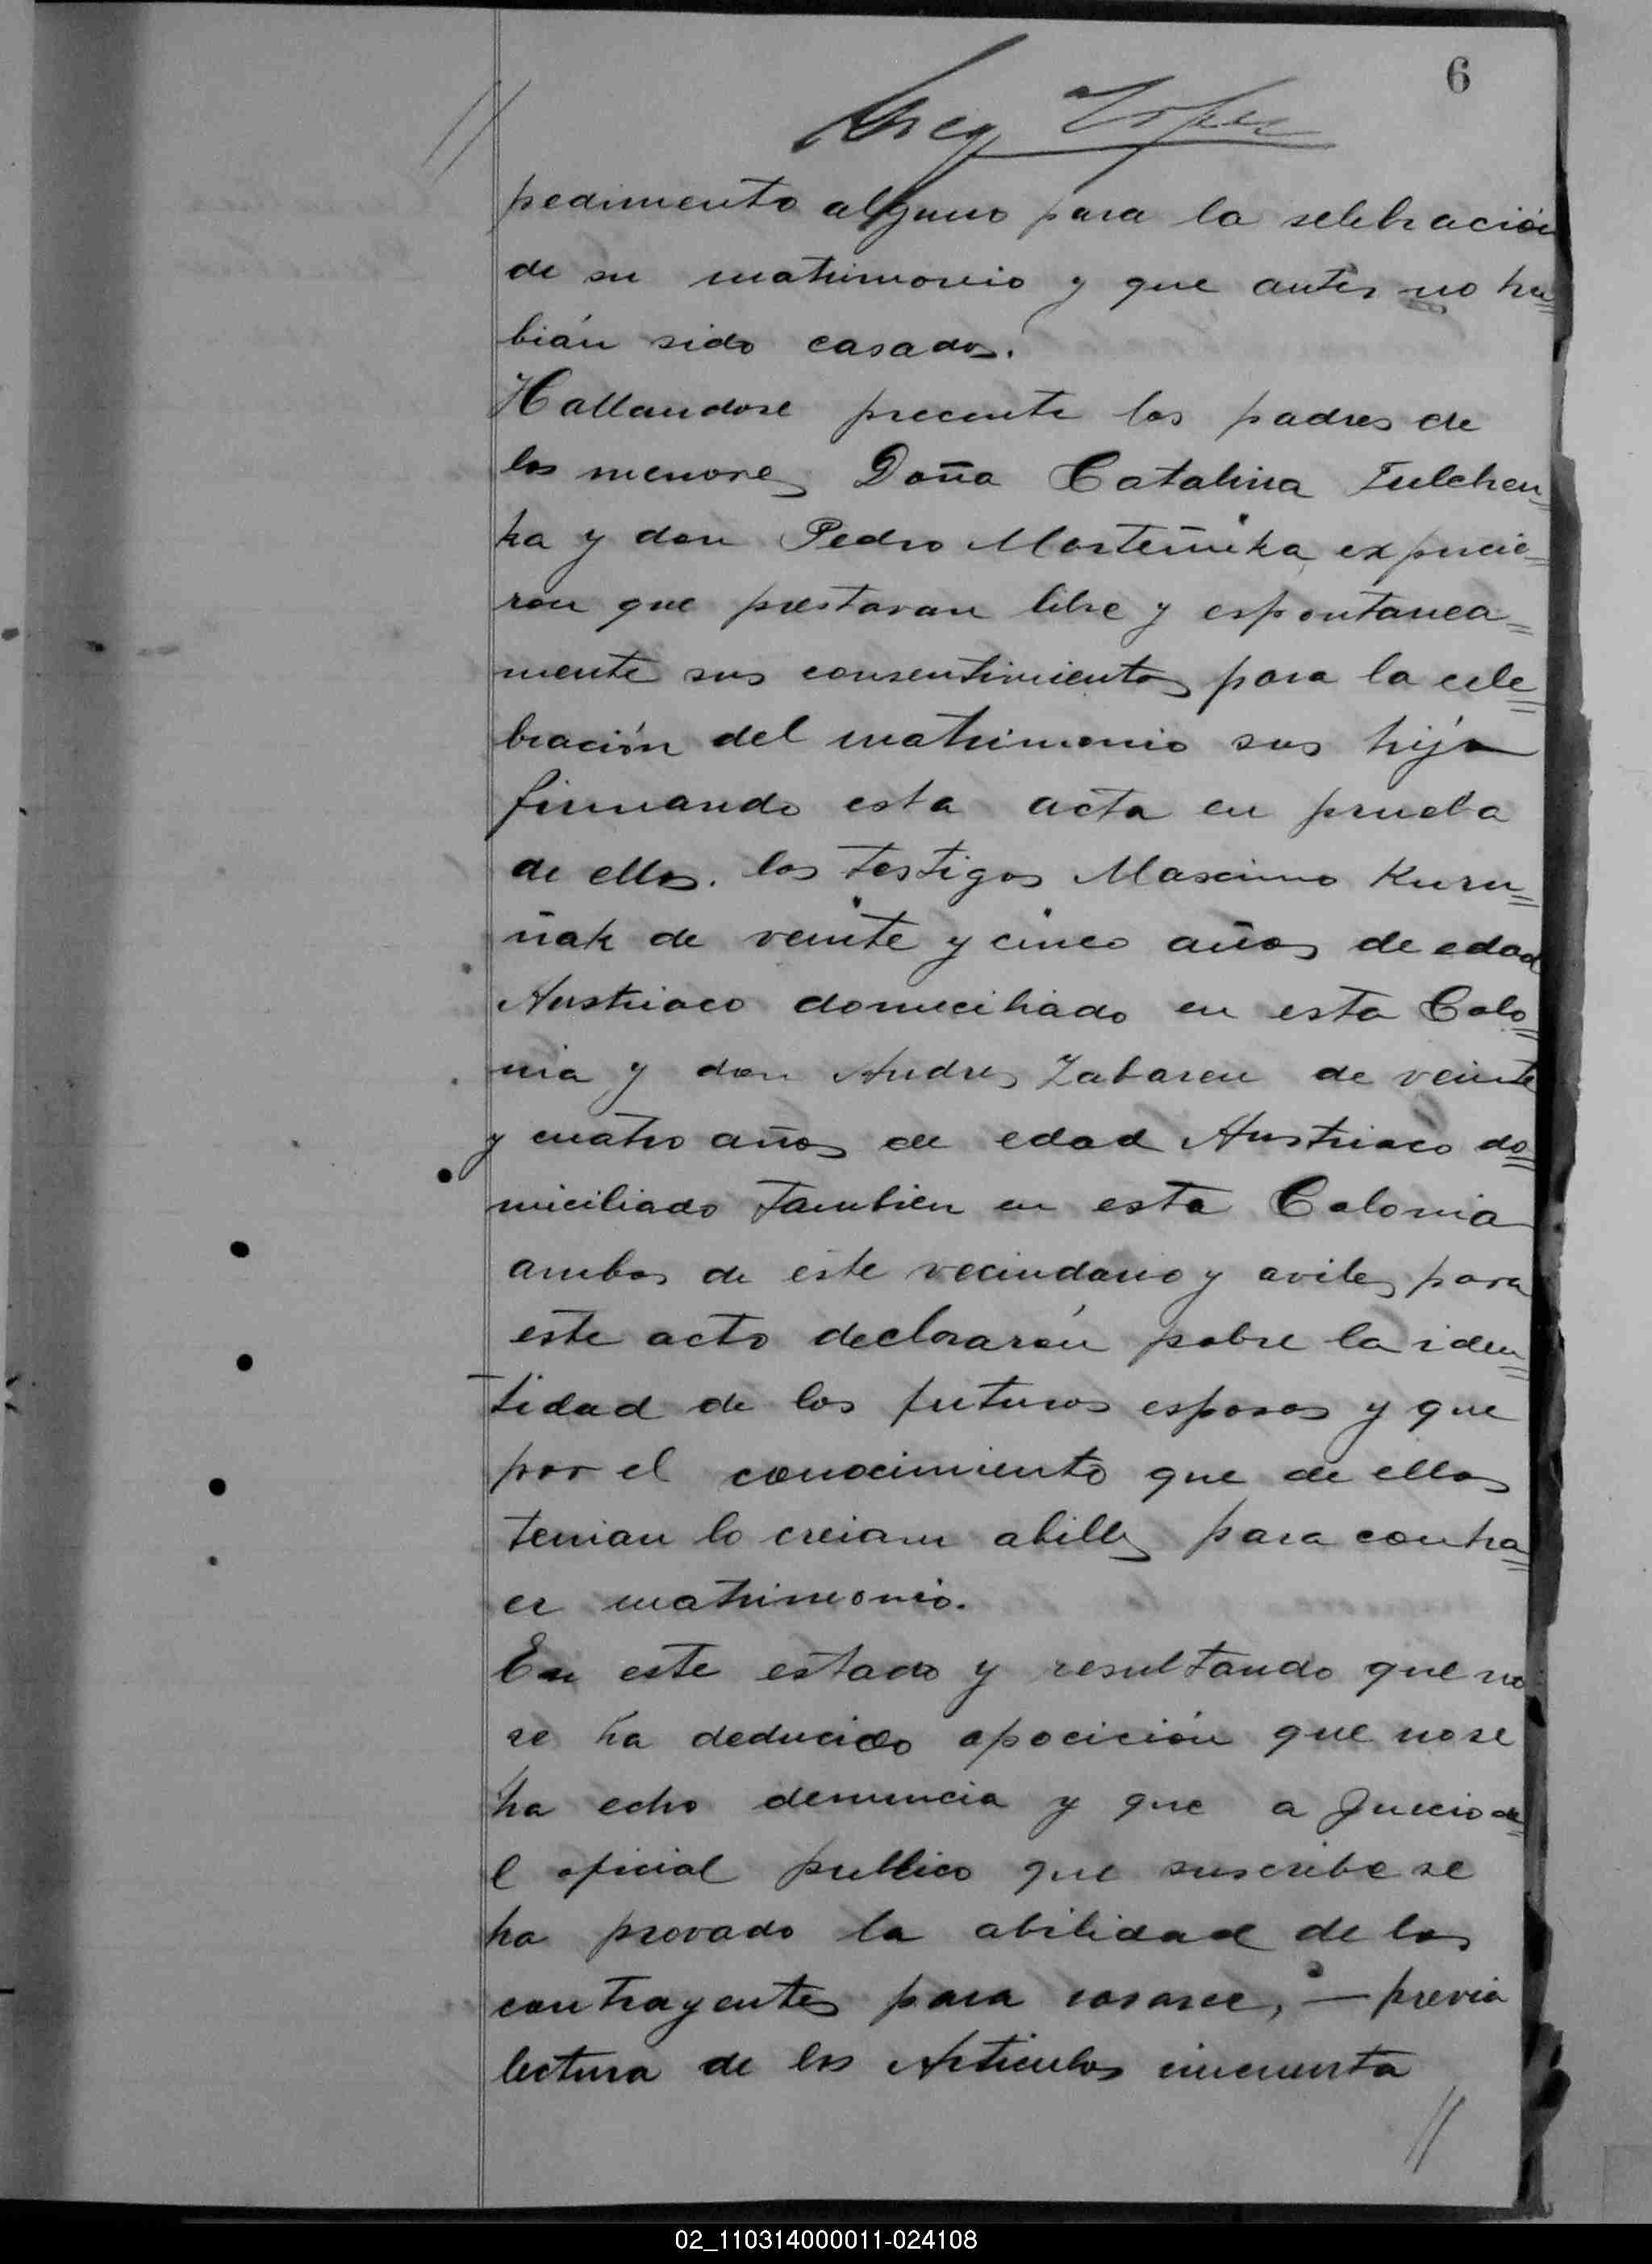 6
pedimento alguno para la selebración
de su matrimonio y que antes no ha=
bián sido casados.
Hallandose precente los padres de
los menores Doña Catalina Tulchen=
ka y don Pedro Morteñuka expucie=
ron que prestavan libre y espontanea=
mente sus consentimientos para la cele=
bración del matrimonio sus hijo
firmando esta acta en prueba
de ellos. los testigos Mascimo Kuru=
ñak de veinte y cinco años de edad
Austriaco domiciliado en esta Colo=
nia y don Andres Zabaren de veinte
y cuatro años de edad Austriaco do=
miciliado tambien en esta Colonia
ambos de este vecindario y aviles para
este acto declararón sobre la iden=
tidad de los futuros esposos y que
por el conocimiento que de ellos
tenian lo creian abilles para contra=
er matrimonio.
En este estado y resultando que no
se ha deducido opocición que no se
ha echo denuncia y que a Juecio de=
l oficial publico que suscribe se
ha provado la abilidad de los
contrayentes para casarce, — previa
lectura de los Articulos cincuenta
//
02_110314000011-024108